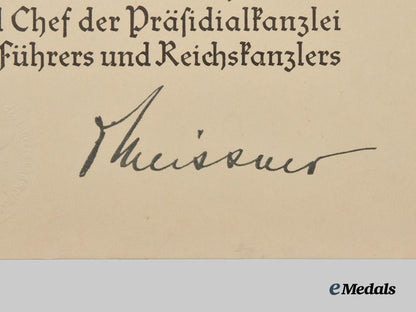 Chef der Präsidialkanzlei
Führers und Reichskanzlers
Meissner
eMedals